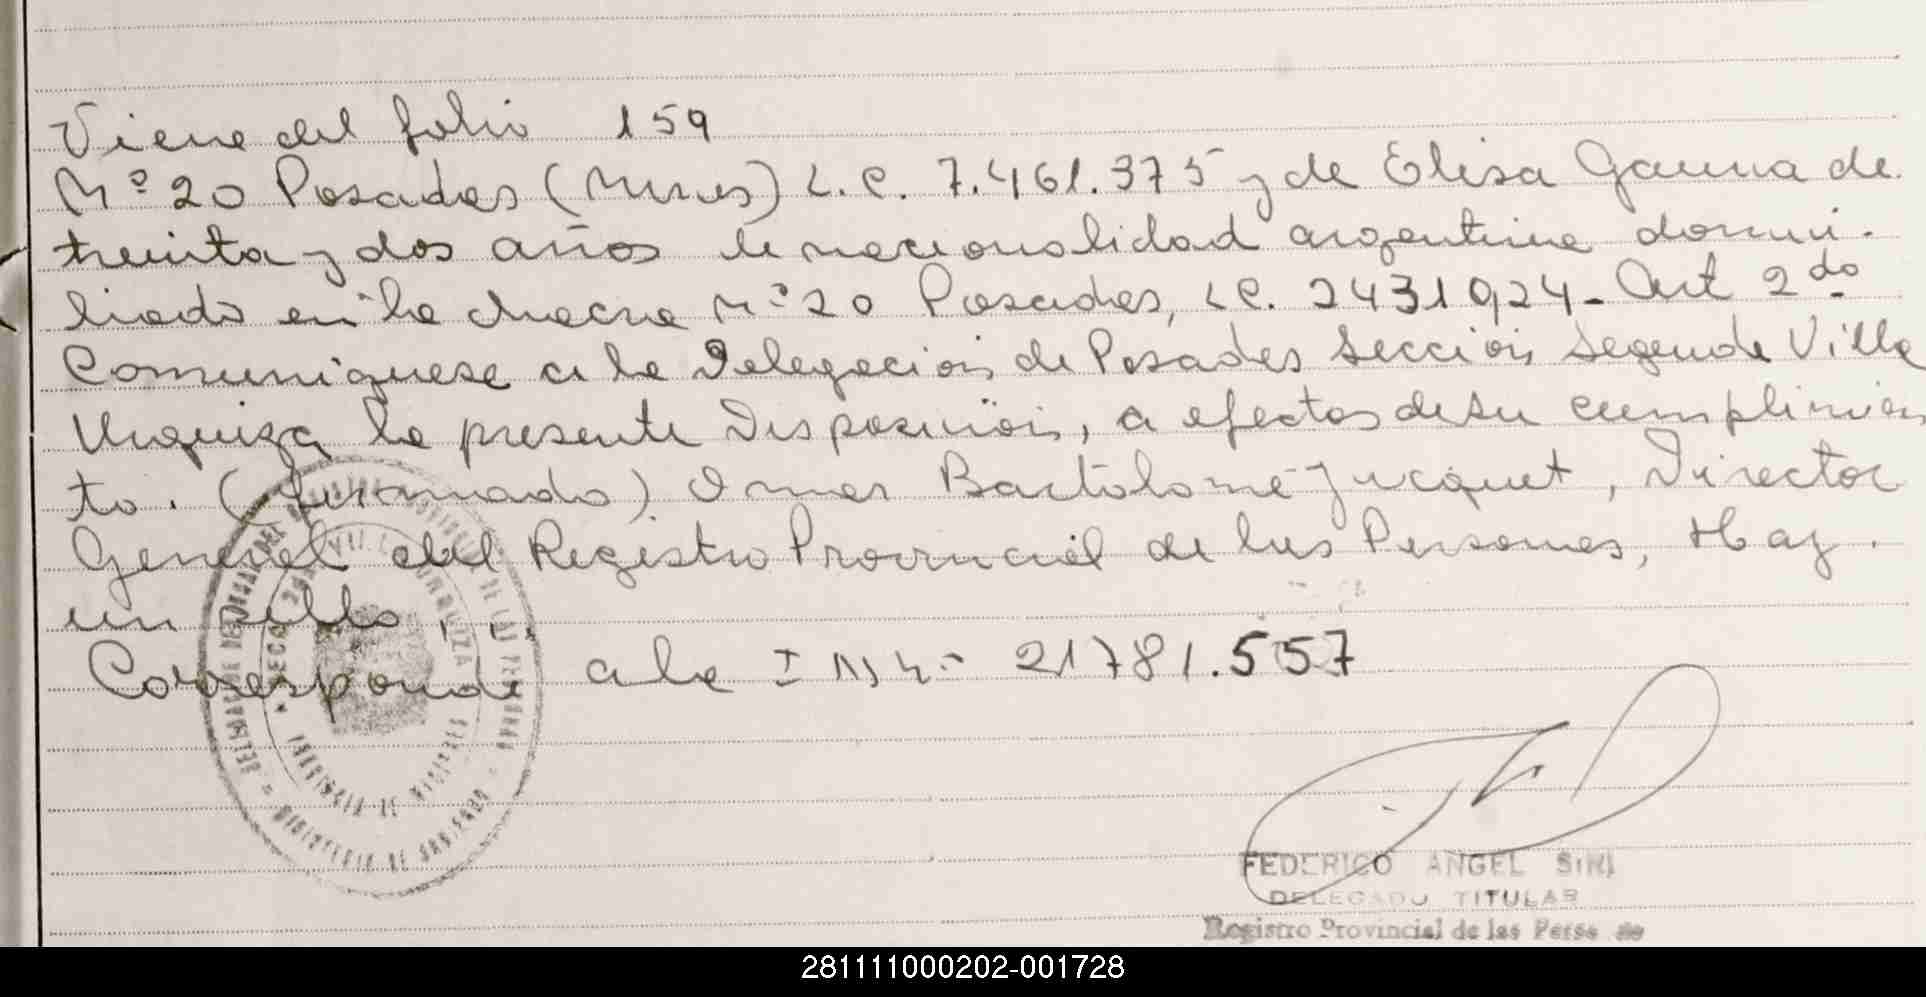 Viene del folio 159
Nº 20 Posadas (Mnes) L.C. 7.461.375 y de Elisa Gauna de
treinta y dos años de nacionalidad argentina domi-
liada en la chacra Nº 20 Posadas, LC. 2431924- Art 2do
Comuniquese a la Delegacion de Posadas Sección Segunda Villa
Urquiza la presente Disposición, a efectos de su cumplimien
to. (firmado) Omar Bartolomé Jucquet, Director
General del Registro Provincial de las Personas, Hay
un sello.
Corresponde a la I Nº 21781.557
FEDERICO ANGEL SIRI
DELEGADO TITULAR
Registro Provincial de las Perso
281111000202-001728